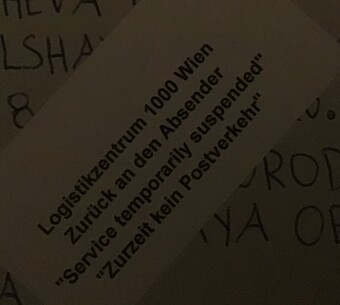 HEVA
LSHA
8
Logistikzentrum 1000 Wien
Zurück an den Absender
"Service temporarily suspended"
"Zurzeit kein Postverkehr"
OROD
YA OB
A